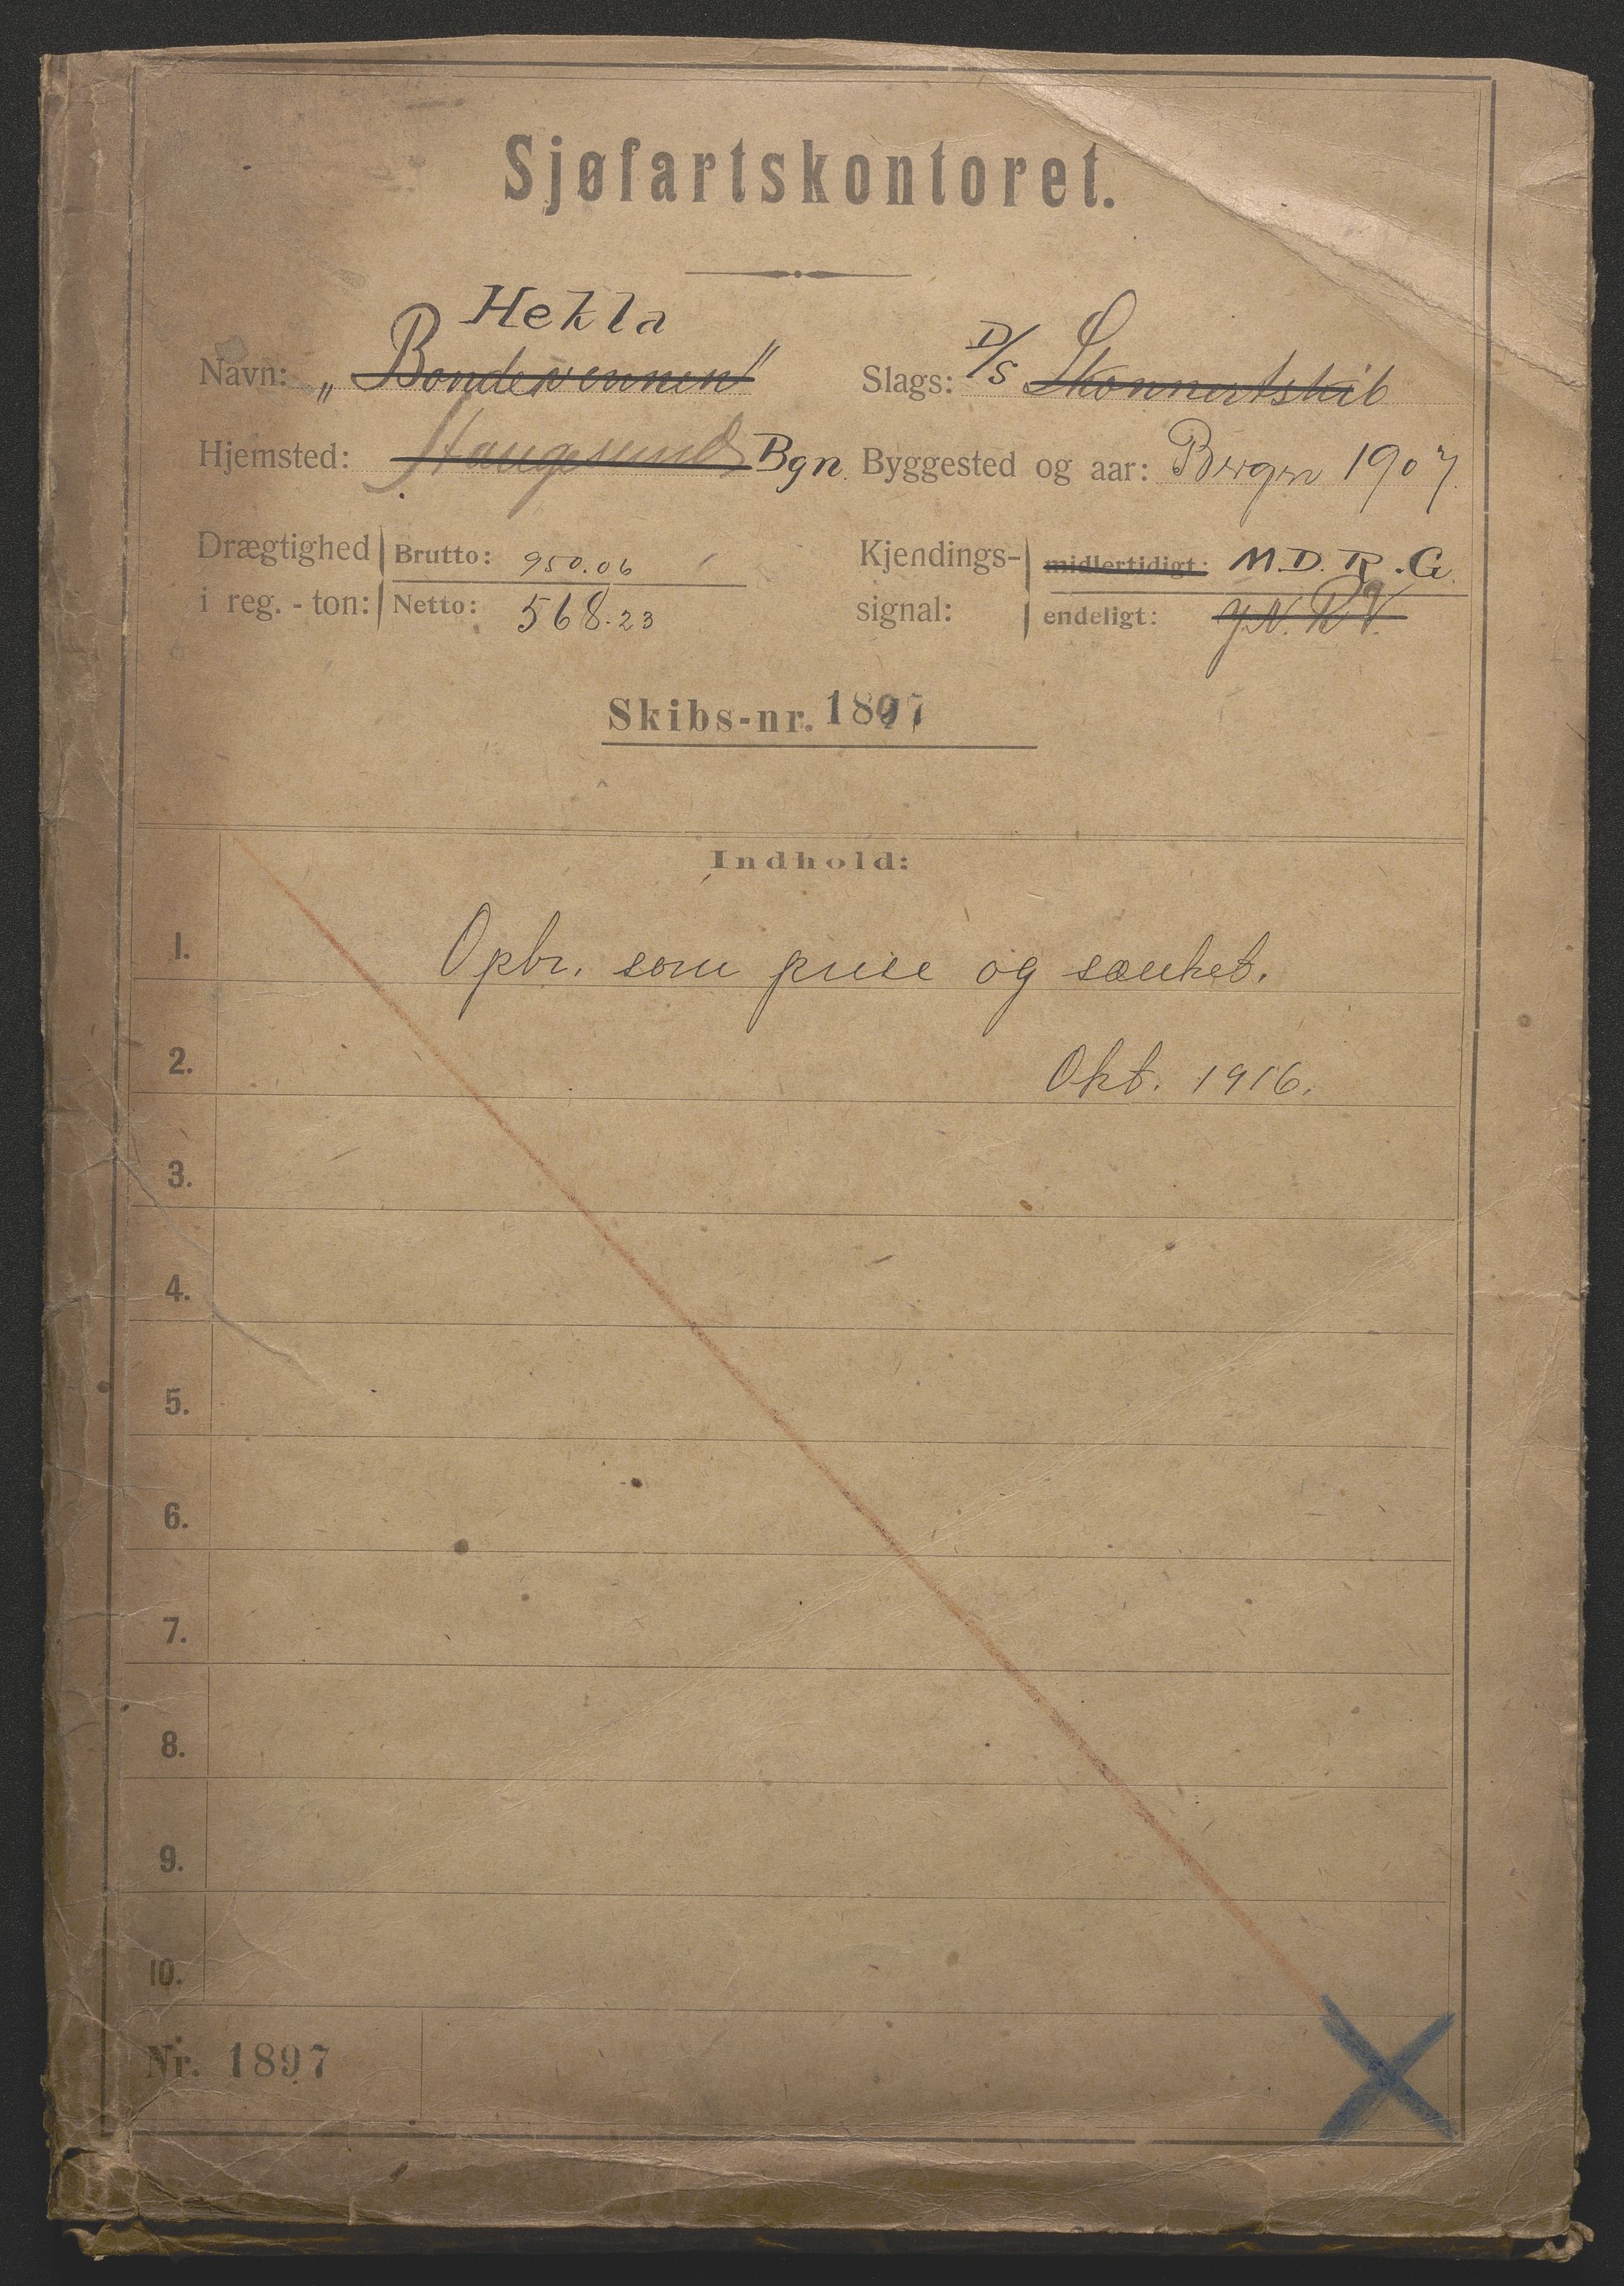 Sjøfartskontoret.
Hekla
Navn: „Bondevennen"
Slags: D/S Skonnertskib
Hjemsted: Haugesund Bgn.
Byggested og aar: Bergen 1907.
Drægtighed i reg.-ton: Brutto: 950.06
Netto: 568.23
Kjendings-signal: midlertidigt: M.D.R.G.
endeligt:
Skibs-nr. 1897
Indhold:
1. Opbr. som prise og sænket.
2. Okt. 1916.
3.
4.
5.
6.
7.
8.
9.
10.
Nr. 1897